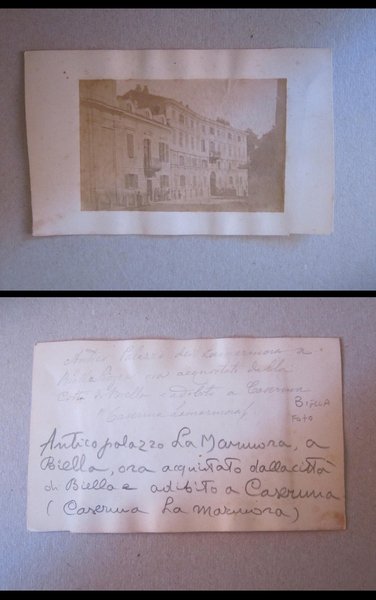 Antico Palazzo dei Lamarmora a
Biella ora acquistato dalla
Città di Biella e adibito a Caserma
(Caserma Lamarmora)
BIGLIA
FOTO
Antico palazzo La Marmora, a
Biella, ora acquistato dalla città
di Biella e adibito a Caserma
(Caserma La Marmora)